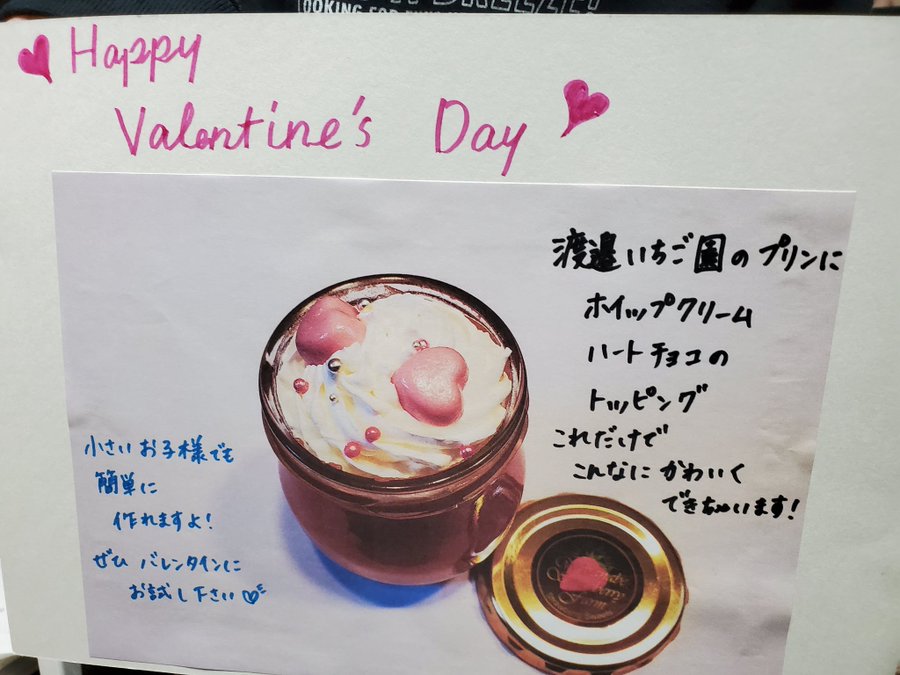 OOKING FOR
Happy
Valentine's Day
渡邉いちご園のプリンに
ホイップクリーム
ハートチョコの
トッピング
これだけで
こんなに かわいく
できちゃいます!
小さいお子様でも
簡単に
作れますよ!
ぜひ バレンタインに
お試し下さい